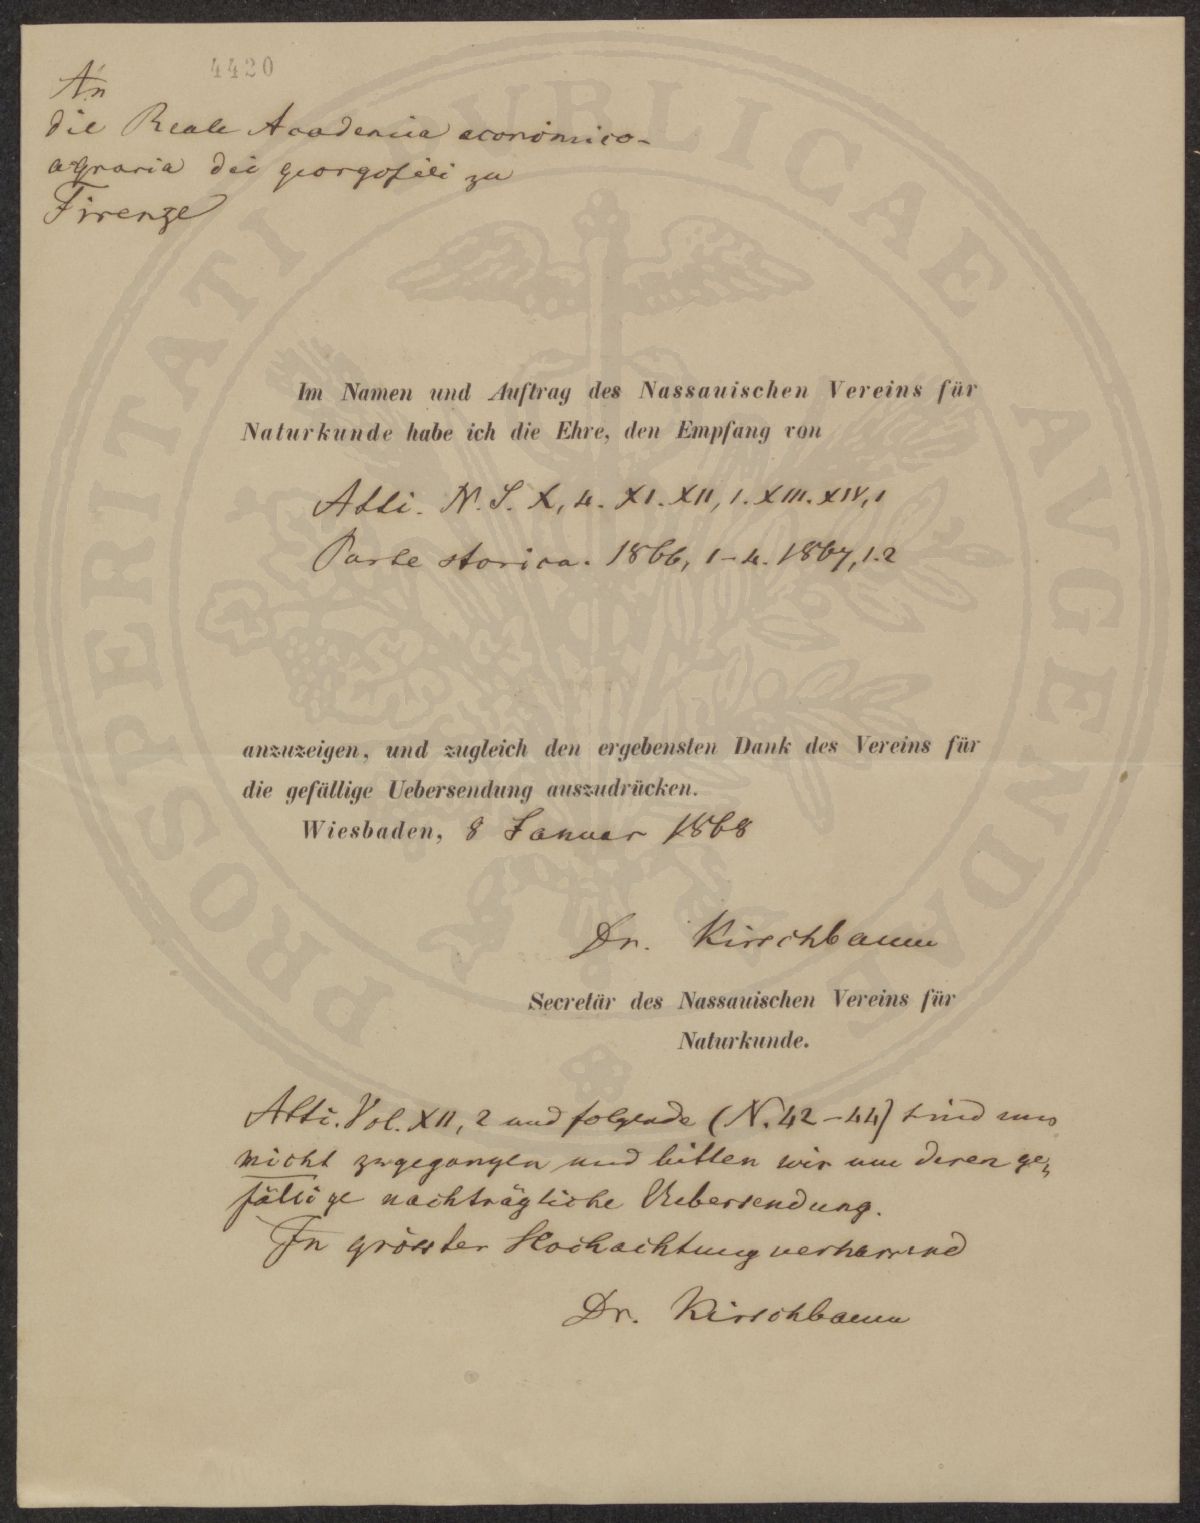 4420
An
die Reale Academia economico-
agraria dei georgofili zu
Firenze
Im Namen und Auftrag des Nassauischen Vereins für
Naturkunde habe ich die Ehre, den Empfang von
Atti. N. S. X, 4. XI. XII, 1. XIII. XIV, 1
Parte storica. 1866, 1-4. 1867, 1.2
anzuzeigen, und zugleich den ergebensten Dank des Vereins für
die gefällige Uebersendung auszudrücken.
Wiesbaden, 8 Januar 1868
Dr. Kirschbaum
Secretär des Nassauischen Vereins für
Naturkunde.
Atti. Vol. XII, 2 und folgende (N. 42-44) sind uns
nicht zugegangen und bitten wir um deren ge-
fällige nachträgliche Uebersendung.
In grösster Hochachtung verharrend
Dr. Kirschbaum
PROSPERITATI PVBLICAE AVGENDAE